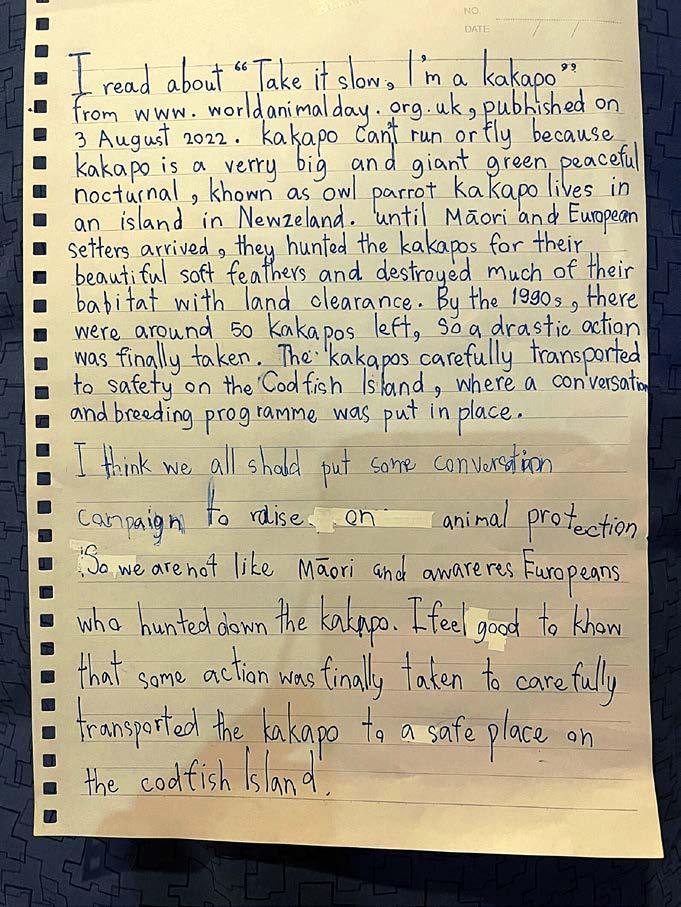 NO.
DATE / /
I read about “Take it slow, I'm a kakapo”
from www.worldanimalday.org.uk, pubhished on
3 August 2022. kakapo can't run or fly because
kakapo is a verry big and giant green peaceful
nocturnal, known as owl parrot kakapo lives in
an island in Newzeland. until Māori and European
setters arrived, they hunted the kakapos for their
beautiful soft feathers and destroyed much of their
babitat with land clearance. By the 1990s, there
were around 50 kakapos left, so a drastic action
was finally taken. The kakapos carefully transported
to safety on the Codfish Island, where a conversation
and breeding programme was put in place.
I think we all shold put some conversation
campaign to raise on animal protection
So we are not like Māori and awareres Europeans
who hunted down the kakapo. I feel good to know
that some action was finally taken to carefully
transported the kakapo to a safe place on
the codfish Island.